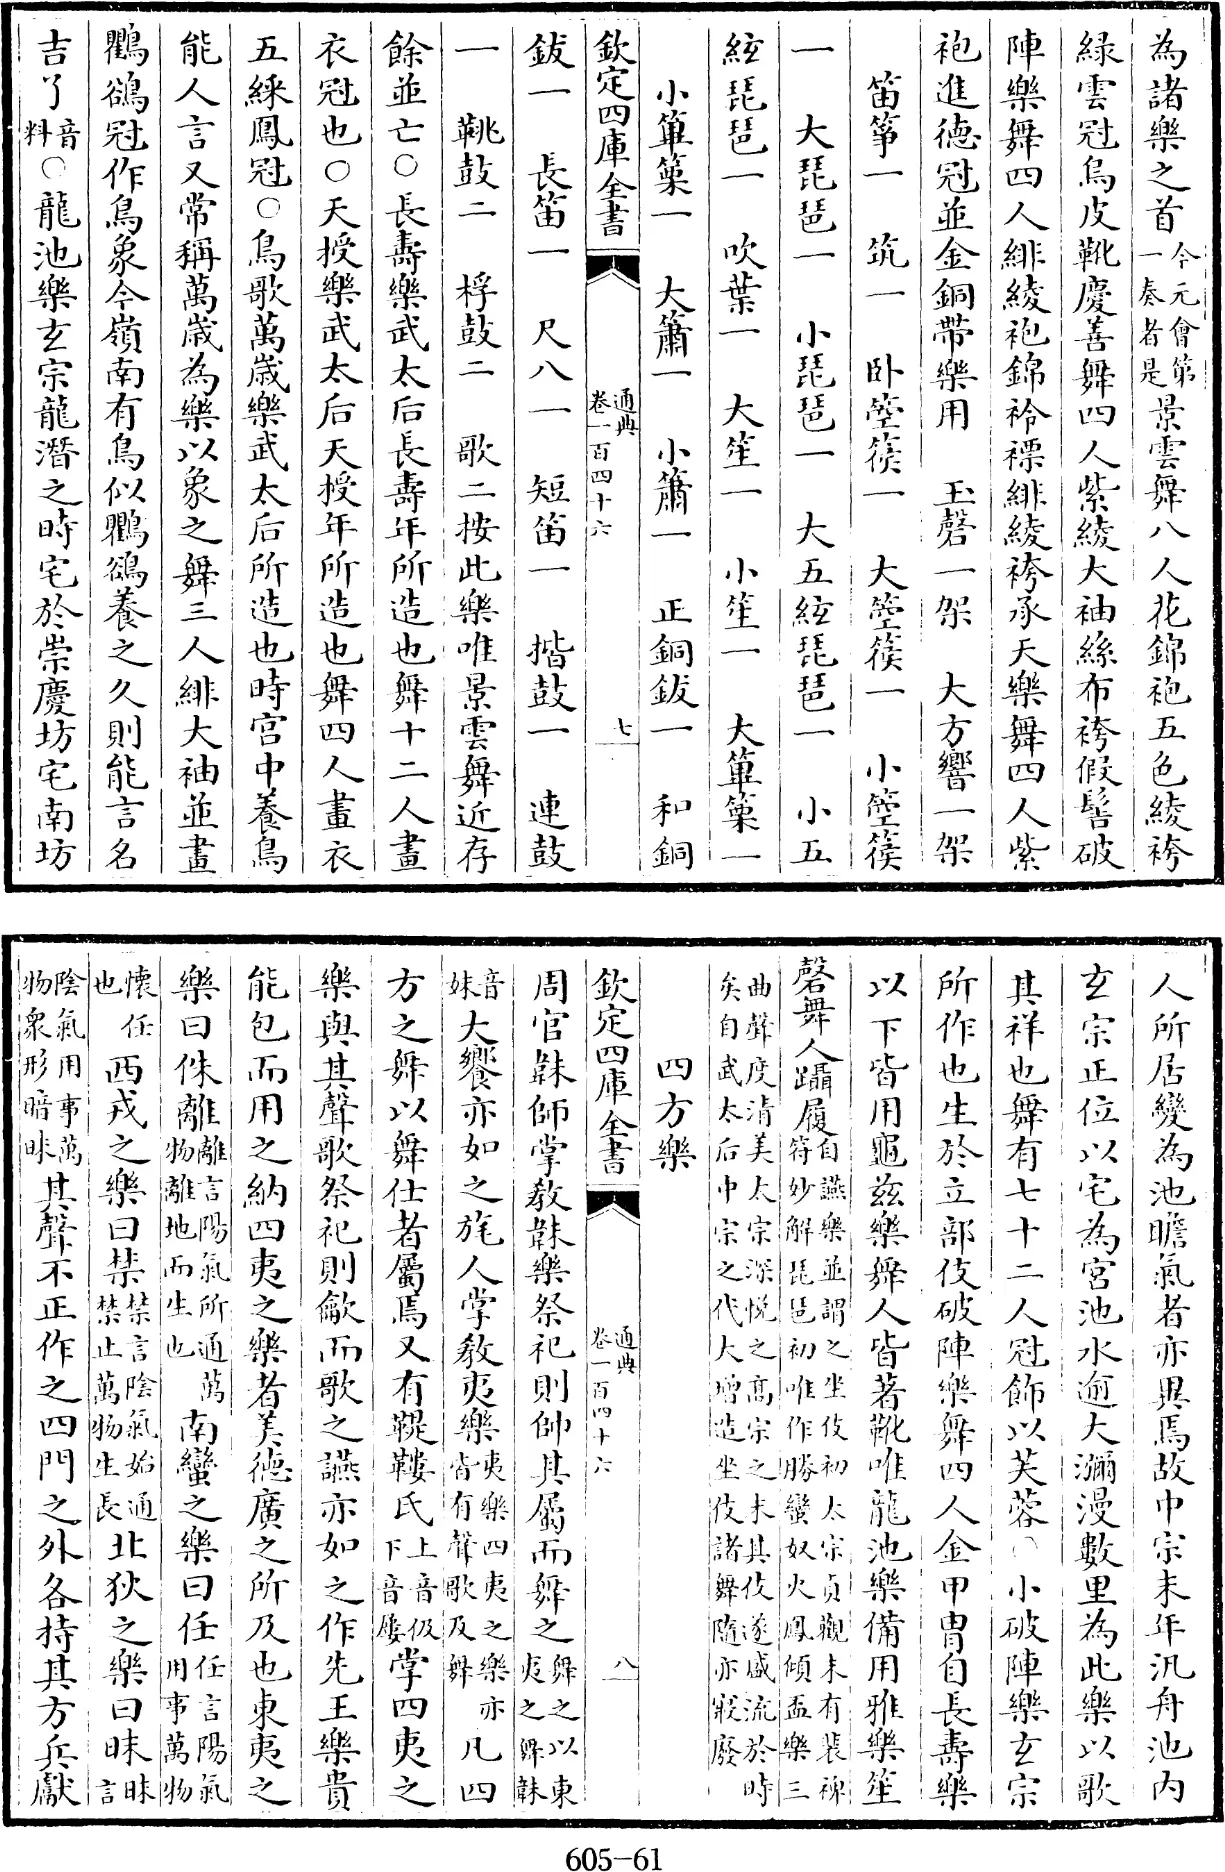 為諸樂之首今元會第一奏者是景雲舞八人花錦袍五色綾袴
緑雲冠烏皮靴慶善舞四人紫綾大袖絲布袴假髻破
陣樂舞四人緋綾袍錦衿褾緋綾袴承天樂舞四人紫
袍進德冠並金銅帶樂用　玉磬一架　大方響一架
笛箏一　筑一　卧箜篌一　大箜篌一　小箜篌
一　大琵琶一　小琵琶一　大五絃琵琶一　小五
絃琵琶一　吹葉一　大笙一　小笙一　大篳篥一
小篳篥一　大簫一　小簫一　正銅鈸一　和銅
欽定四庫全書　通典卷一百四十六　七
鈸一　長笛一　尺八一　短笛一　揩鼓一　連鼓
一　鞉鼓二　桴鼓二　歌二按此樂唯景雲舞近存
餘並亡〇長壽樂武太后長壽年所造也舞十二人畫
衣冠也〇天授樂武太后天授年所造也舞四人畫衣
五綵鳳冠〇鳥歌萬歲樂武太后所造也時宫中養鳥
能人言又常稱萬歲為樂以象之舞三人緋大袖並畫
鸜鵒冠作鳥象今嶺南有鳥似鸜鵒養之久則能言名
吉了音料〇龍池樂玄宗龍潛之時宅於崇慶坊宅南坊
人所居變為池瞻氣者亦異焉故中宗末年汎舟池内
玄宗正位以宅為宫池水逾大瀰漫數里為此樂以歌
其祥也舞有七十二人冠飾以芙蓉〇小破陣樂玄宗
所作也生於立部伎破陣樂舞四人金甲胄自長壽樂
以下皆用龜兹樂舞人皆著靴唯龍池樂備用雅樂笙
磬舞人躡履自讌樂並謂之坐伎初太宗貞觀末有裴神符妙解琵琶初唯作勝蠻奴火鳳傾盃樂三
曲聲度清美太宗深悦之高宗之末其伎遂盛流於時矣自武太后中宗之代大增造坐伎諸舞隨亦寢廢
四方樂
欽定四庫全書　通典卷一百四十六　八
周官韎師掌教韎樂祭祀則帥其屬而舞之舞之以東夷之舞韎
音妹大饗亦如之旄人掌教夷樂夷樂四夷之樂亦皆有聲歌及舞凡四
方之舞以舞仕者屬焉又有鞮鞻氏上音仍下音屨掌四夷之
樂與其聲歌祭祀則龡而歌之讌亦如之作先王樂貴
能包而用之納四夷之樂者美德廣之所及也東夷之
樂曰侏離離言陽氣所通萬物離地而生也南蠻之樂曰任任言陽氣用事萬物
懷任也西戎之樂曰禁禁言陰氣始通禁止萬物生長北狄之樂曰昧昧言
陰氣用事萬物衆形暗昧其聲不正作之四門之外各持其方兵獻
605-61